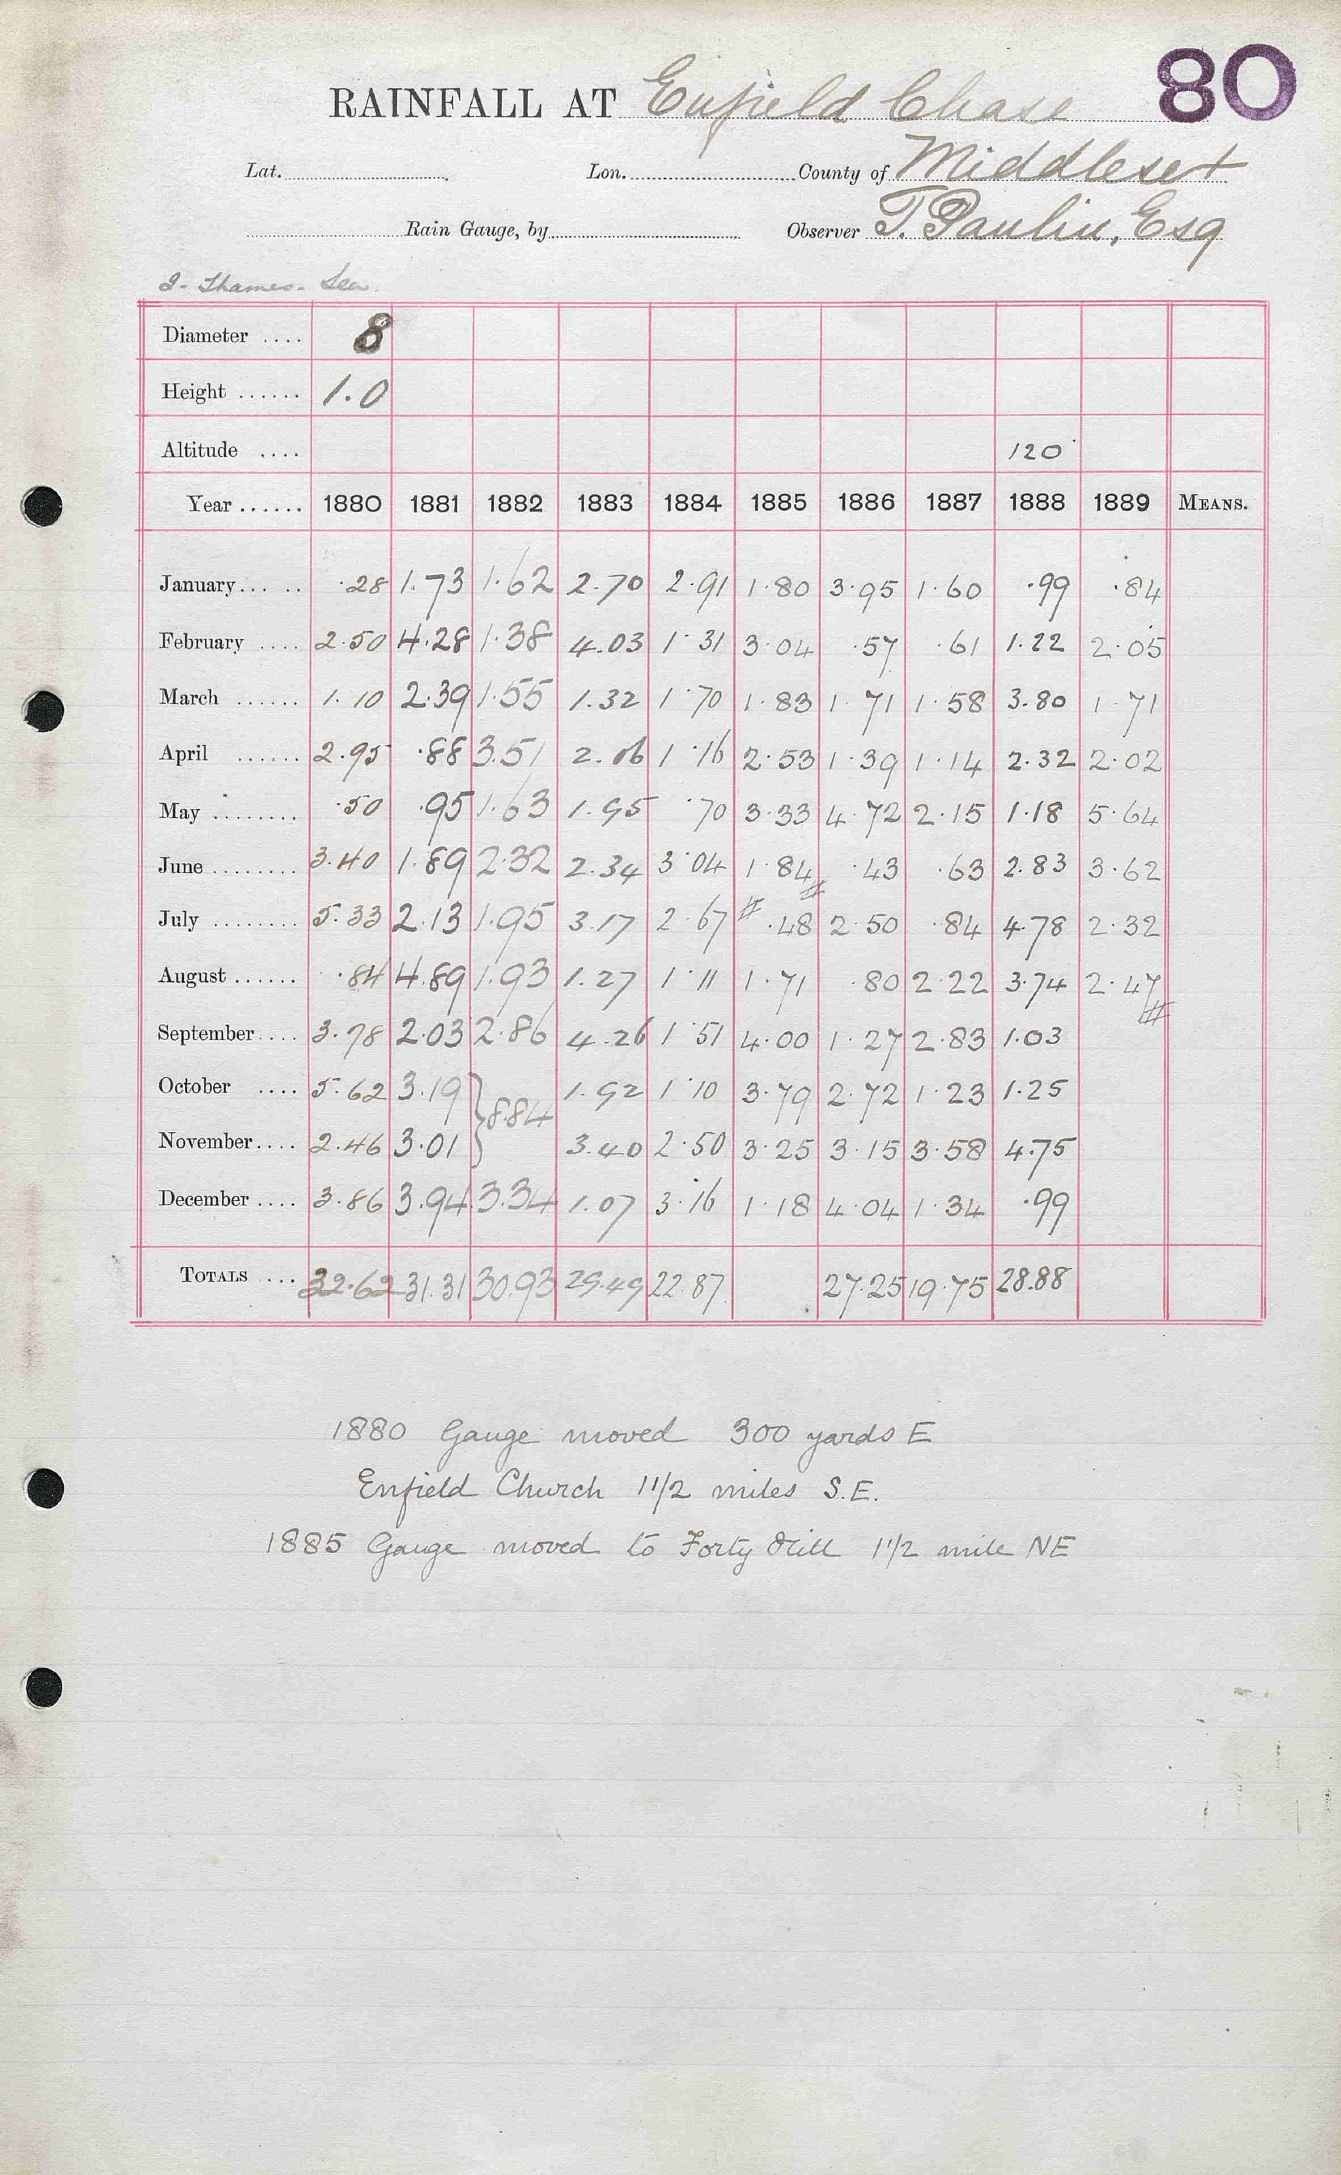 80
RAINFALL AT Enfield Chase
Lat. Lon. County of Middlesex
Rain Gauge, by Observer T. Paulin, Esq
Thames - Lea.
Diameter .... 8
Height ...... 1.0
Altitude .... 120
Year ...... 1880 1881 1882 1883 1884 1885 1886 1887 1888 1889 MEANS.
January... .. .28 1.73 1.62 2.70 2.91 1.80 3.95 1.60 .99 .84
February .... 2.50 4.28 1.38 4.03 1.31 3.04 .57 .61 1.22 2.05
March ...... 1.10 2.39 1.55 1.32 1.70 1.83 1.71 1.58 3.80 1.71
April ...... 2.95 .88 3.51 2.06 1.16 2.53 1.39 1.14 2.32 2.02
May ........ .50 .95 1.63 1.95 .70 3.33 4.72 2.15 1.18 5.64
June ........ 3.40 1.89 2.32 2.34 3.04 1.84 .43 .63 2.83 3.62
July ........ 5.33 2.13 1.95 3.17 2.67 # .48 # 2.50 .84 4.78 2.32
August ...... .84 4.89 1.93 1.27 1.11 1.71 .80 2.22 3.74 2.47 #
September.... 3.78 2.03 2.86 4.26 1.51 4.00 1.27 2.83 1.03
October .... 5.62 3.19 } 8.84 1.92 1.10 3.79 2.72 1.23 1.25
November.... 2.46 3.01 3.40 2.50 3.25 3.15 3.58 4.75
December .... 3.86 3.94 3.34 1.07 3.16 1.18 4.04 1.34 .99
TOTALS .... 32.62 31.31 30.93 29.49 22.87 27.25 19.75 28.88
1880 Gauge moved 300 yards E
Enfield Church 1 1/2 miles S.E.
1885 Gauge moved to Forty Hill 1 1/2 mile NE